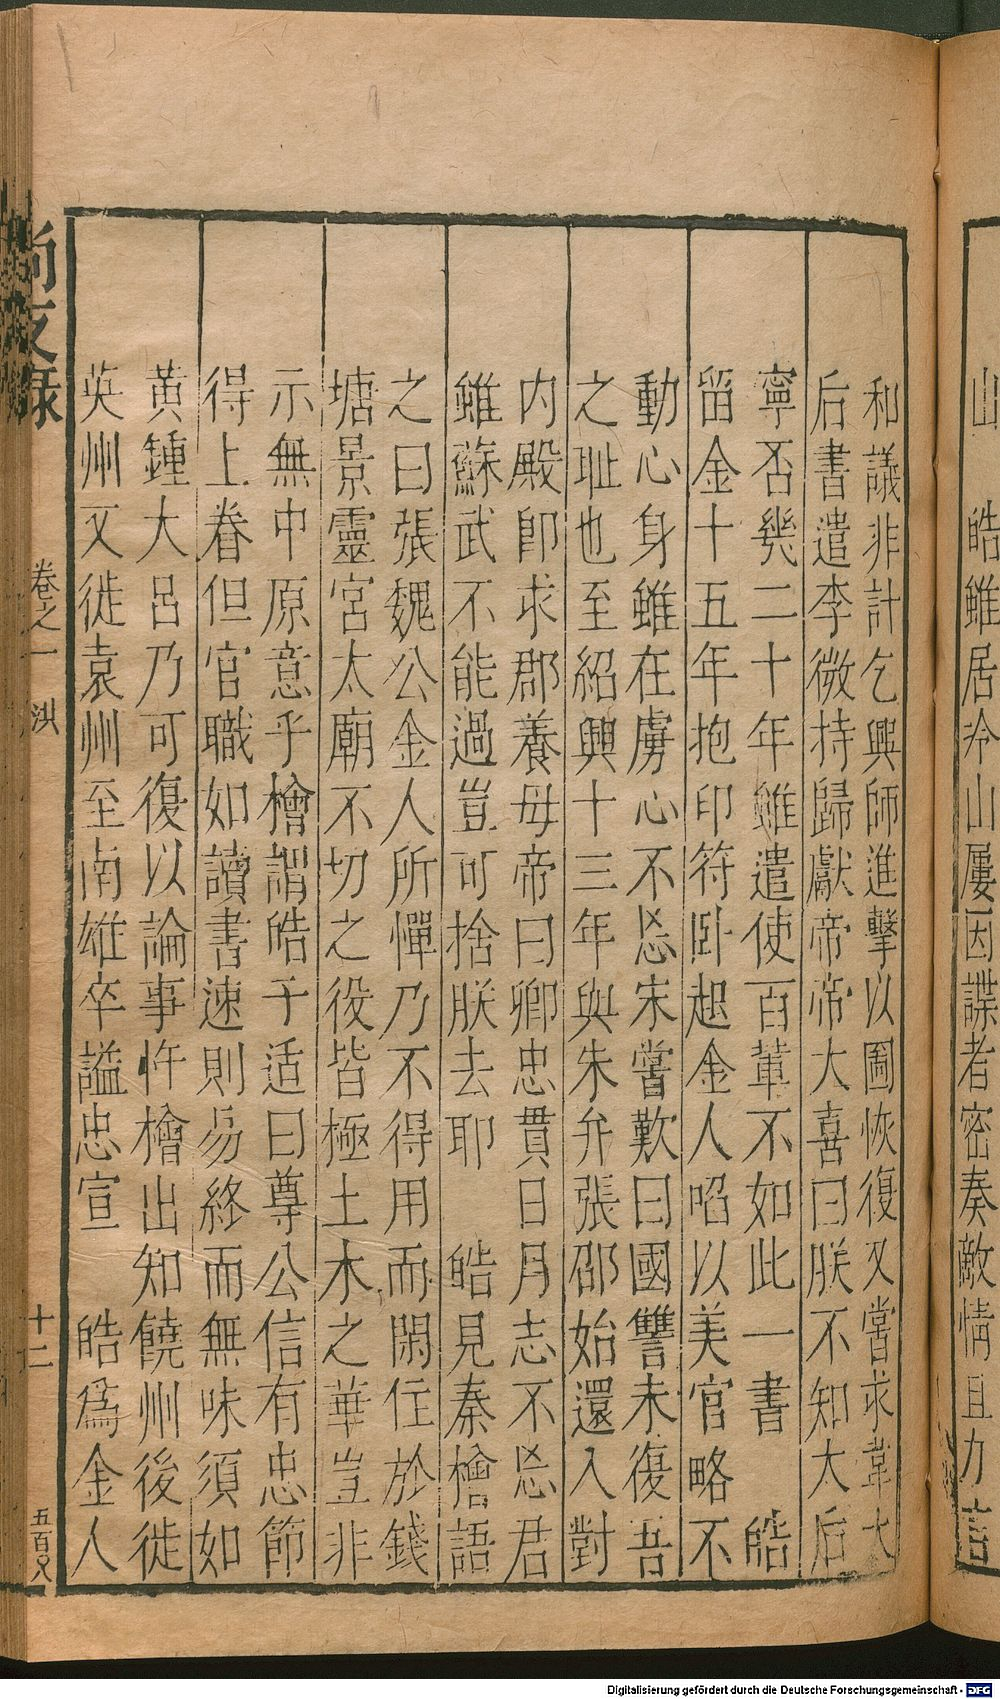 山　皓雖居冷山屢因諜者密奏敵情且力言
和議非計乞興師進擊以圖恢復又嘗求韋大
后書遣李微持歸獻帝帝大喜曰朕不知大后
寧否幾二十年雖遣使百輩不如此一書　皓
留金十五年抱印符卧起金人啗以美官略不
動心身雖在虜心不忘宋嘗歎曰國讐未復吾
之耻也至紹興十三年與朱弁張邵始還入對
内殿卽求郡養母帝曰卿忠貫日月志不忘君
雖蘇武不能過豈可捨朕去耶　皓見秦檜語
之曰張魏公金人所憚乃不得用而閑住於錢
塘景靈宮太廟不切之役皆極土木之華豈非
示無中原意乎檜謂皓子适曰尊公信有忠節
得上眷但官職如讀書速則易終而無味須如
黄鍾大呂乃可復以論事忤檜出知饒州後徙
英州又徙袁州至南雄卒謚忠宣　皓爲金人
尚友錄　卷之一　洪　十二　五百八
Digitalisierung gefördert durch die Deutsche Forschungsgemeinschaft - DFG